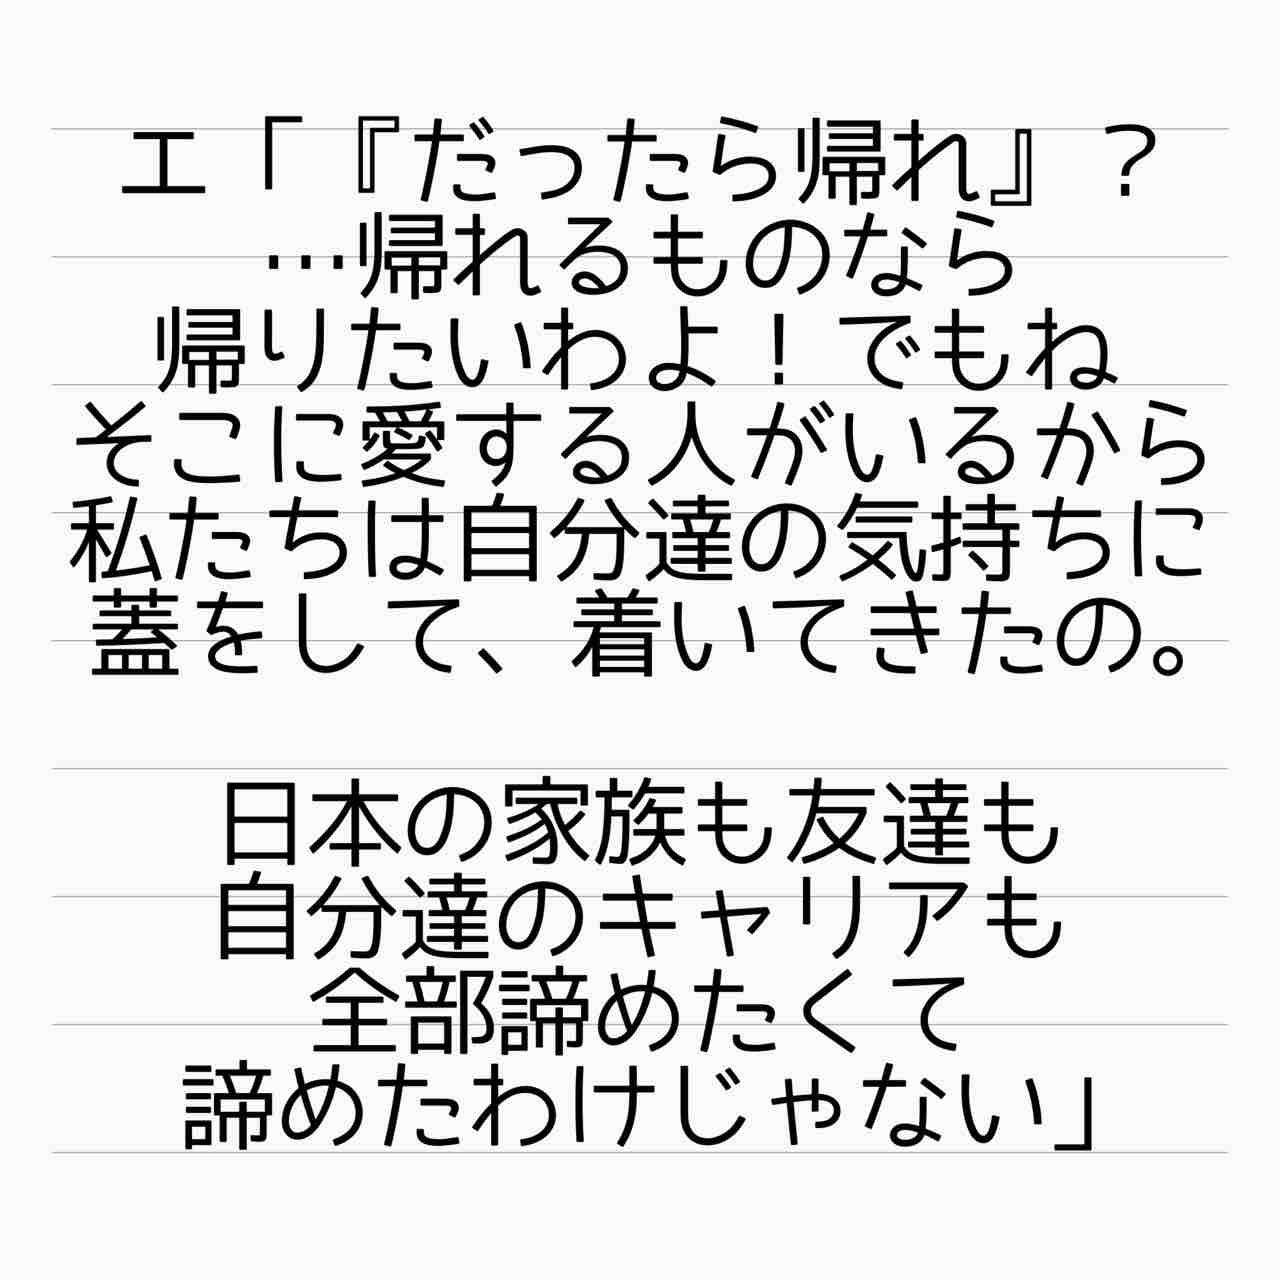 エ「『だったら帰れ』？
…帰れるものなら
帰りたいわよ！でもね
そこに愛する人がいるから
私たちは自分達の気持ちに
蓋をして、着いてきたの。
日本の家族も友達も
自分達のキャリアも
全部諦めたくて
諦めたわけじゃない」